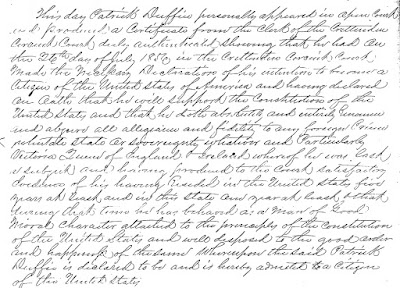 This day Patrick Duffin personally appeared in open Court
and produced a Certificate from the Clerk of the Crittenden
Circuit Court duly authenticated showing that he had on
the 26th day of July 185 in the Crittenden Circuit Court
Made the necessary Declaration of his intention to become a
Citizen of the United States of America and having declared
on Oath that he will support the Constitution of the
United States and that he doth absolutely and entirely renounce
and abjure all allegiance and fidelity to any foreign Prince
potentate State or Sovereignty whatever and Particularly
Victoria Queen of England & Ireland whereof he was last
a subject and having produced to the Court satisfactory
Evidence of his having resided in the United States five
years at least and in this State one year at least & that
during that time he has behaved as a Man of Good
Moral Character attached to the principles of the constitution
of the United States and well disposed to the good order
and happiness of the same Whereupon the said Patrick
Duffin is declared to be and is hereby admitted to a Citizen
of the United States